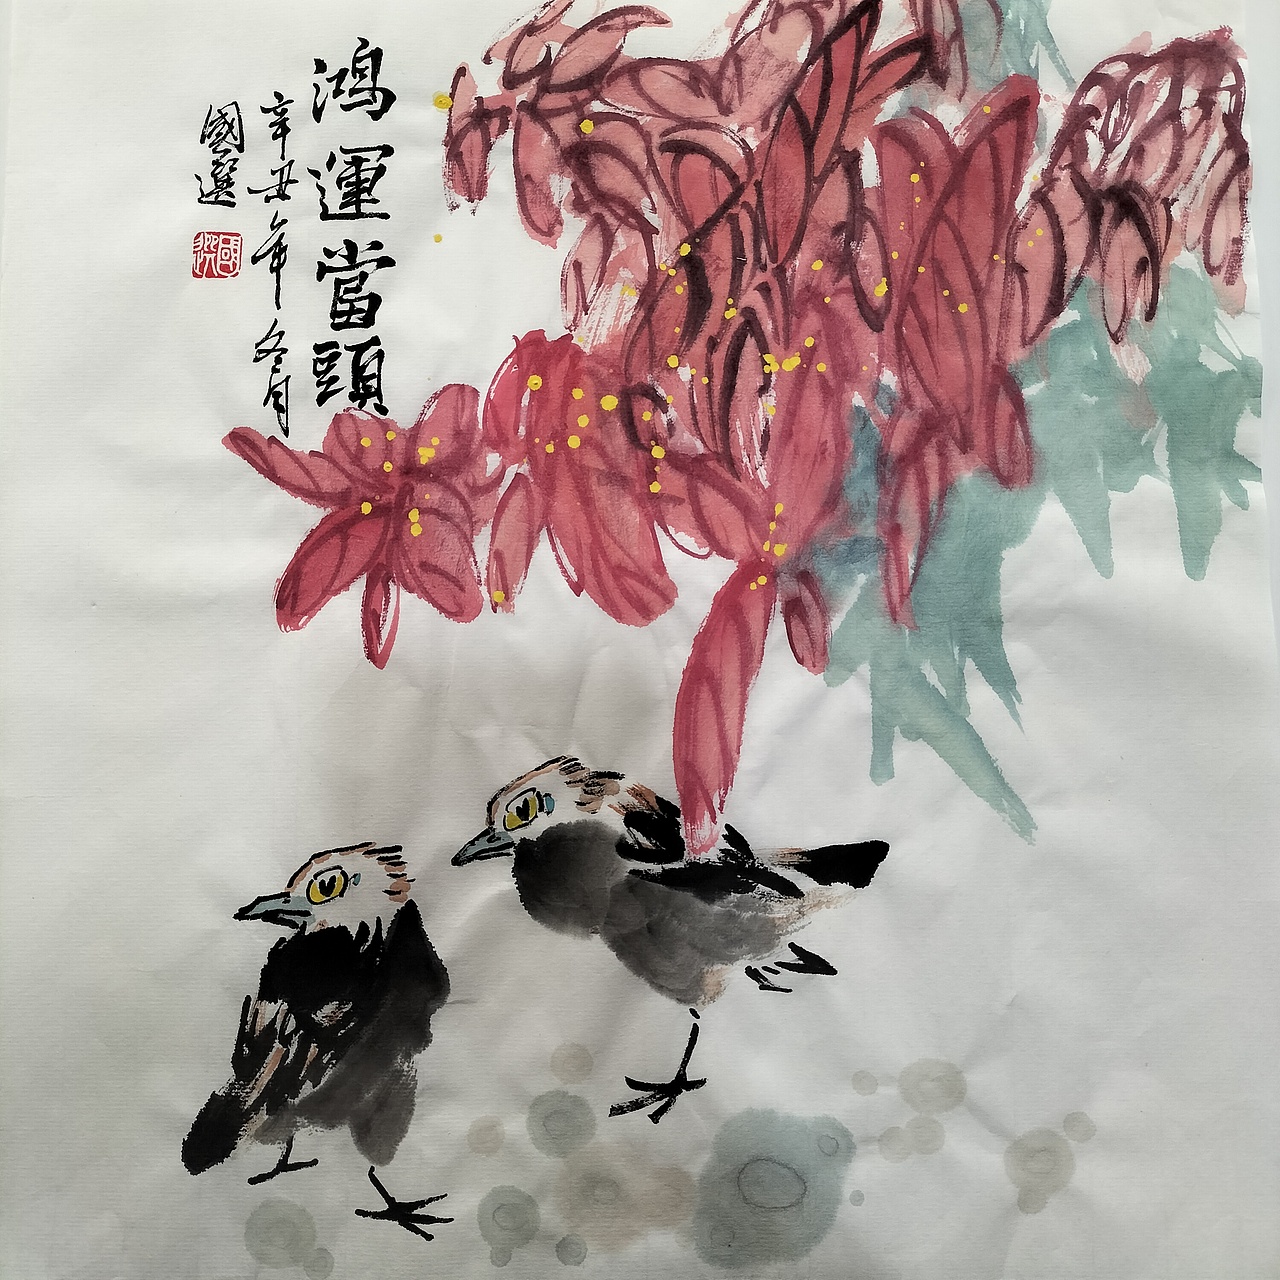 鴻運當頭
辛丑年冬月
國選
國選